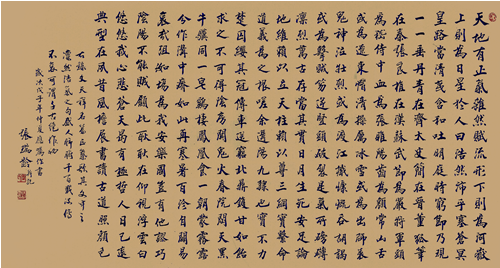 天地有正氣雜然賦流形下則為河嶽
上則為日星於人曰浩然沛乎塞蒼冥
皇路當清夷含和吐明庭時窮節乃現
一一垂丹青在齊太史簡在晉董狐筆
在秦張良椎在漢蘇武節為嚴將軍頭
為嵇侍中血為張睢陽齒為顏常山舌
或為遼東帽清操厲冰雪或為出師表
鬼神泣壯烈或為渡江楫慷慨吞胡羯
或為擊賊笏逆豎頭破裂是氣所磅礴
凜烈萬古存當其貫日月生死安足論
地維賴以立天柱賴以尊三綱實繫命
道義為之根嗟余遘陽九隸也實不力
楚囚纓其冠傳車送窮北鼎鑊甘如飴
求之不可得陰房闃鬼火春院閉天黑
牛驥同一皂雞棲鳳凰食一朝蒙霧露
分作溝中瘠如此再寒暑百沴自辟易
哀哉沮洳場為我安樂國豈有他繆巧
陰陽不能賊顧此耿耿在仰視浮雲白
悠悠我心悲蒼天曷有極哲人日已遠
典型在夙昔風檐展書讀古道照顏色
右錄文天祥名篇正氣歌其文中之
凜然浩氣之為感人肺腑千百載流傳
不衰可謂古絕作也
歲次戊子年仲夏
張瑞齡